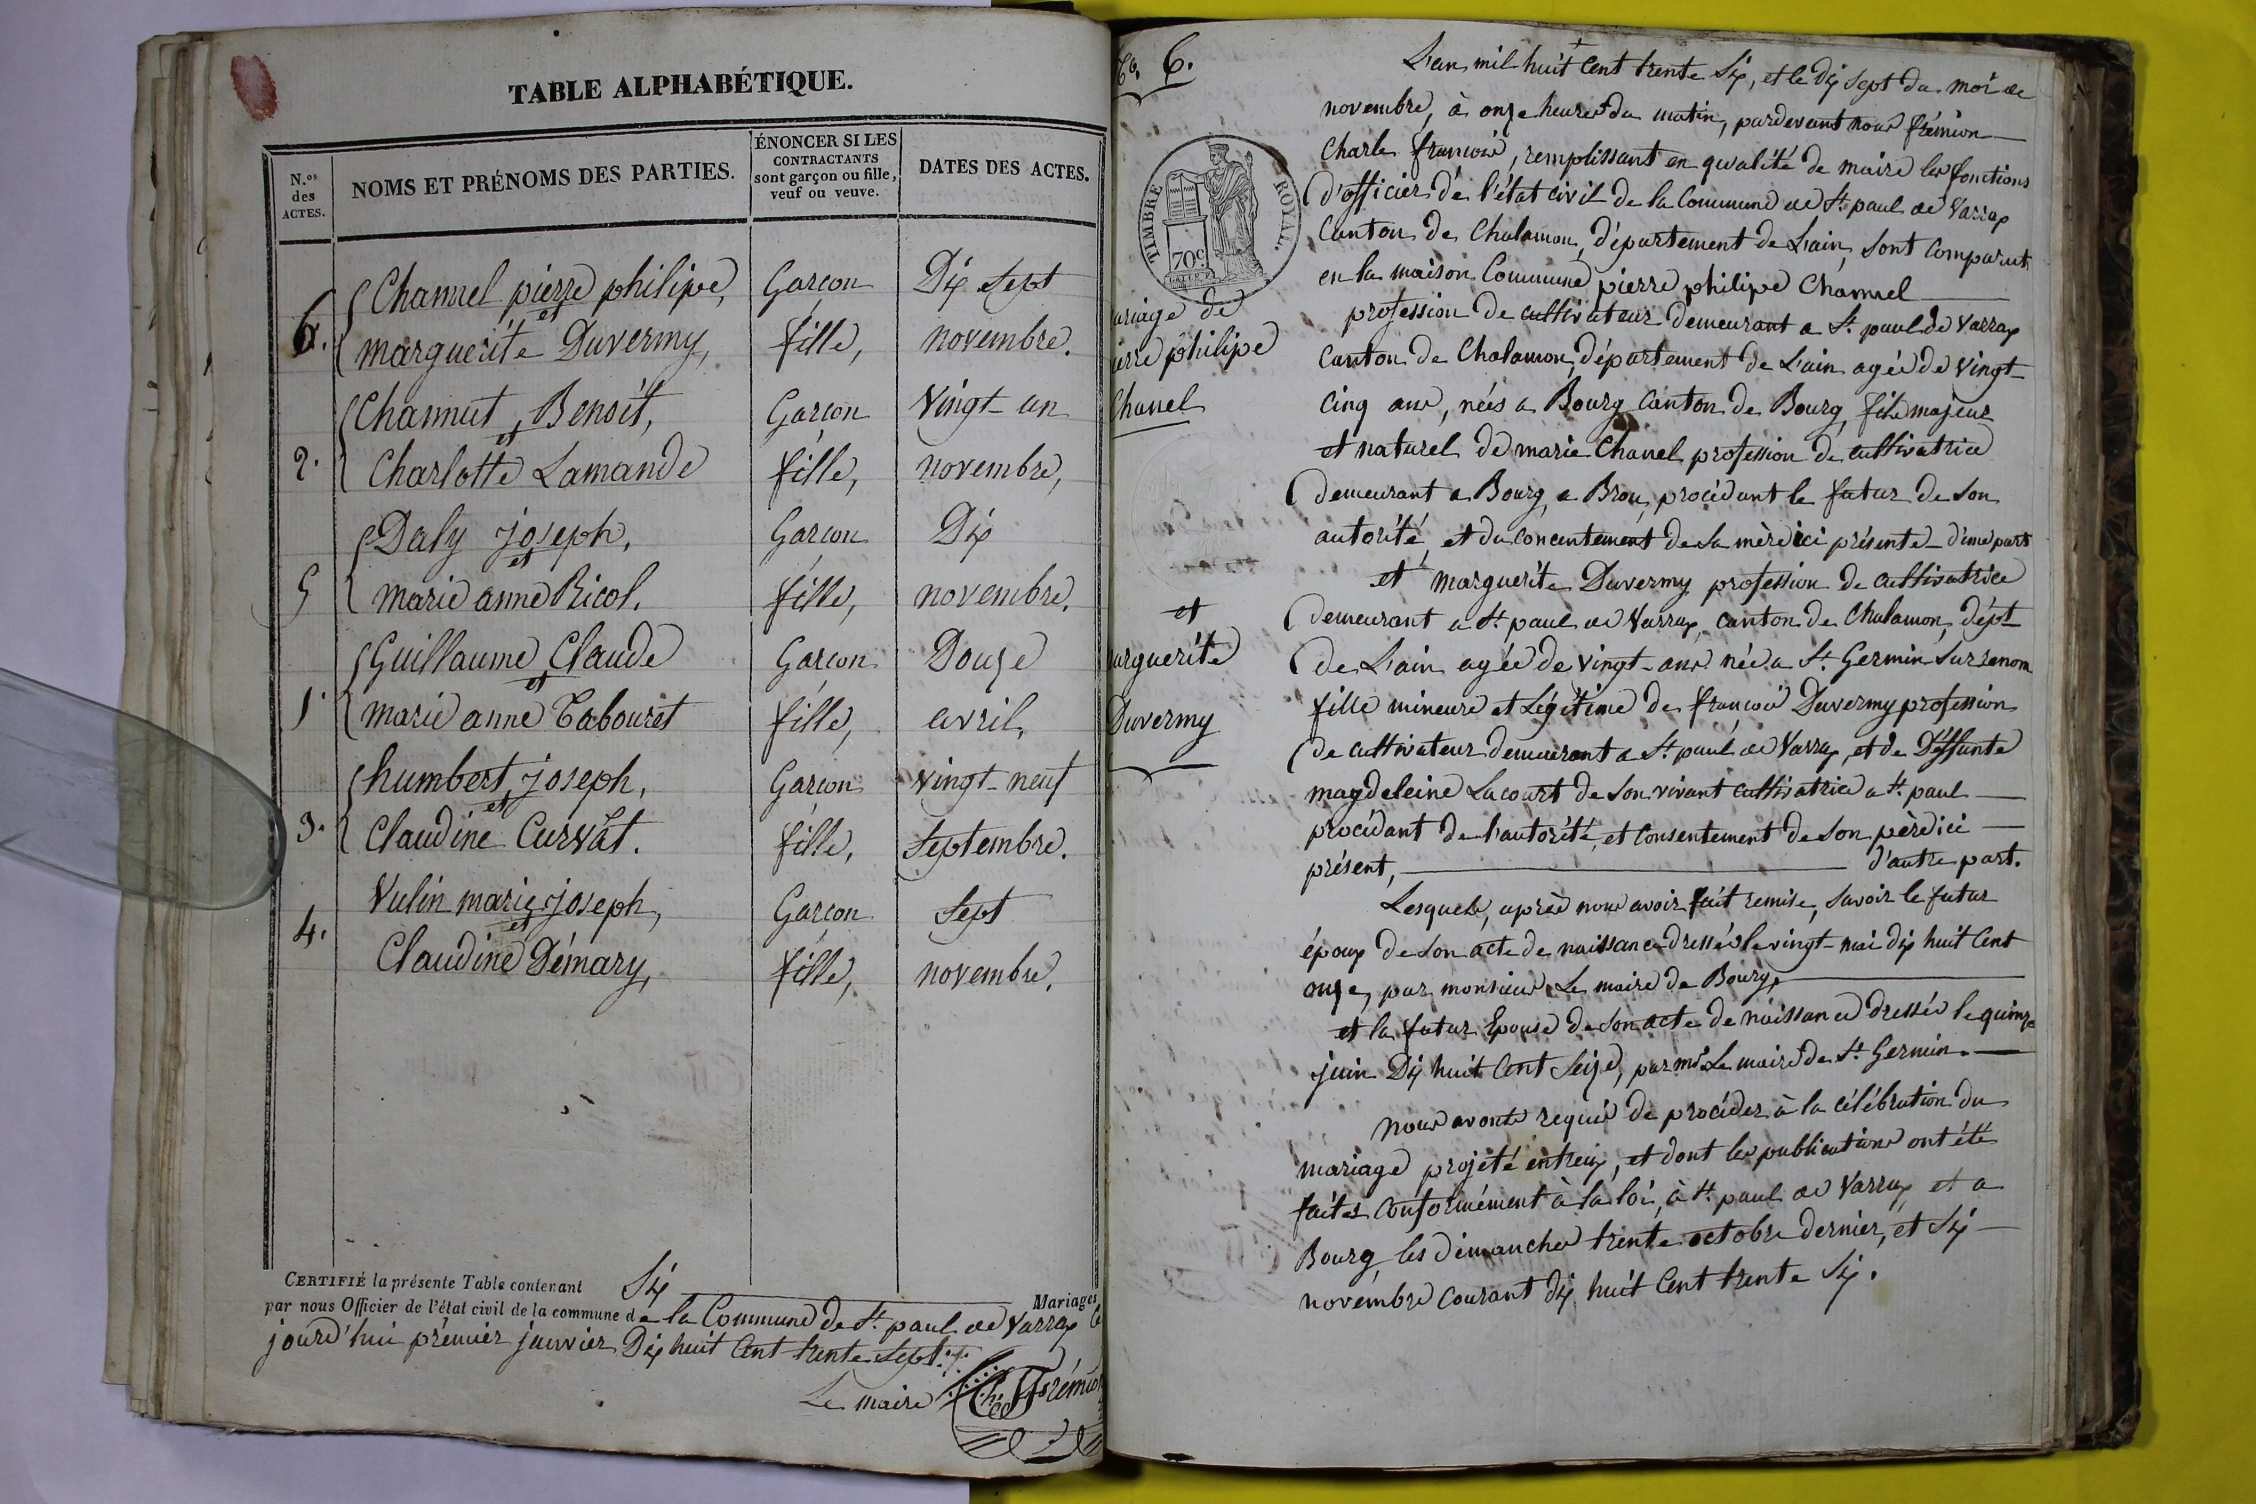 TABLE ALPHABÉTIQUE.
N.os des ACTES.
NOMS ET PRÉNOMS DES PARTIES.
ÉNONCER SI LES
CONTRACTANTS
sont garçon ou fille,
veuf ou veuve.
DATES DES ACTES.
Channel pierre philipe, Garçon Dix sept
6. et
marguerite Duvermy, fille, novembre.
Channut, Benoit, Garçon Vingt-un
2. et
Charlotte Lamande fille, novembre,
Daly joseph, Garçon Dix
5 et
marie anne Ricol. fille, novembre.
Guillaume, Claude Garçon Douze
1. et
marie anne Tabouret fille, avril,
humbert, joseph, Garçon vingt-neuf
3. et
Claudine Curvat. fille, Septembre.
Vulin marie joseph, Garçon Sept
4. et
Claudine Démary, fille, novembre.
CERTIFIÉ la présente Table contenant Six Mariages
par nous Officier de l'état civil de la commune de la Commune de St. paul de Varax
jourd'hui prémier janvier Dix huit Cent trente Sept.
Le maire Ch. Frémion
6.
TIMBRE ROYAL.
70c
ariage de
ierre philipe
Chanel
et
arguerite
Duvermy
L'an mil huit Cent trente Six, et le dix sept du moi de
novembre, à onze heures du matin, pardevant nous frémion
Charle françois, remplissant en qualité de maire les fonctions
d'officier de l'état civil de la Commune de St. paul de Varax
Canton de Chalamon, département de L'ain, sont comparut
en la maison Commune pierre philipe Channel
profession de cultivateur demeurant a St. paul de Varrax
canton de Chalamon, département de L'ain agée de vingt-
cinq ans, nées a Bourg Canton de Bourg, fils majeur
et naturel de marie Chanel profession de cultivatrice
demeurant a Bourg, a Brou, procédant le futur de son
autorité, et du concentement de sa mère ici présente d'une part
et marguerite Duvermy profession de cultivatrice
demeurant a St. paul de Varrax, canton de Chalamon, dépt-
de L'ain agée de vingt-ans née a St. Germin Sur renom
fille mineure et Légitime de françois Duvermy profession
de cultivateur demeurant a St. paul de Varrax, et de Déffunte
magdeleine Lacourt de son vivant cultivatrice a St. paul
procédant de l'autorité, et consentement de son père ici
présent, d'autre part.
Lesquels, après nous avoir fait remise, savoir le futur
époux de son acte de naissance dressée le vingt-mai dix huit Cent
onze, par monsieur Le maire de Bourg,
et la futur Epouse de son acte de naissance dressée le quinze
juin Dix huit Cent Seize, par mr. Le maire de St. Germin.
nous avonts requis de procéder à la célébration du
mariage projeté entreux, et dont les publications ont été
faites conformément à la loi, à St. paul de Varrax et a
Bourg, les dimanches trente octobre dernier, et Six
novembre courant dix huit Cent trente Six.